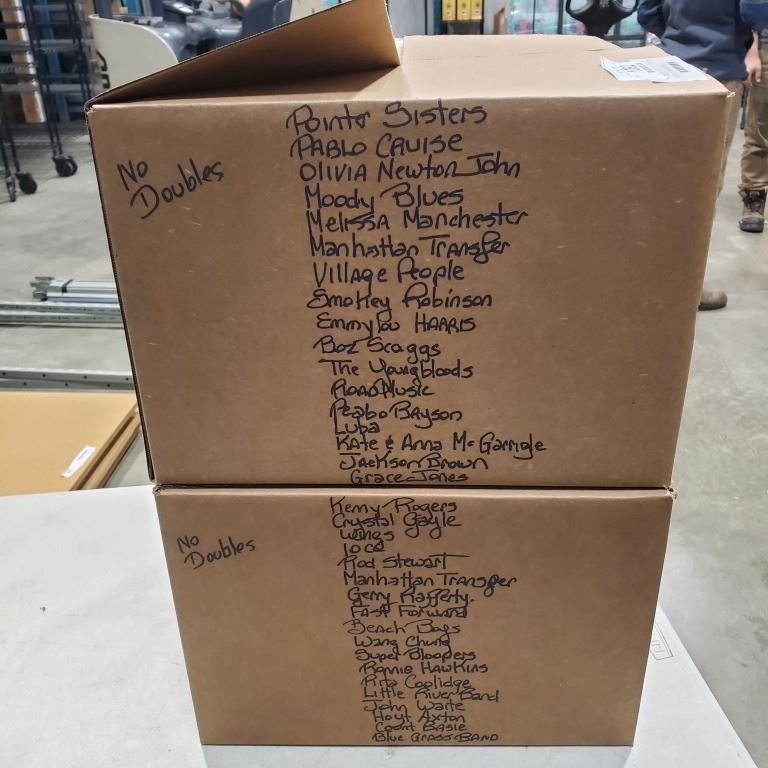 No
Doubles
Pointr Sisters
PABLO CRUISE
OLIVIA Newton John
Moody Blues
Melissa Manchester
Manhattan Transfer
Village People
Smokey Robinson
Emmylou HARRIS
Boz Scaggs
The Youngbloods
ROAD MUSIC
Peabo Bryson
Luba
KAte & Anna McGarrigle
JACKSON Brown
Grace Jones
No
Doubles
Kenny Rogers
Crystal Gayle
Wings
Rod Stewart
Manhattan Transfer
Gerry Rafferty.
FAST Forward
Beach Boys
Wang Chung
Super Bloopers
Ronnie HAWKINS
Rita Coolidge
Little River Band
John Waite
Hoyt Axton
Count BASIE
Blue GRASS BAND